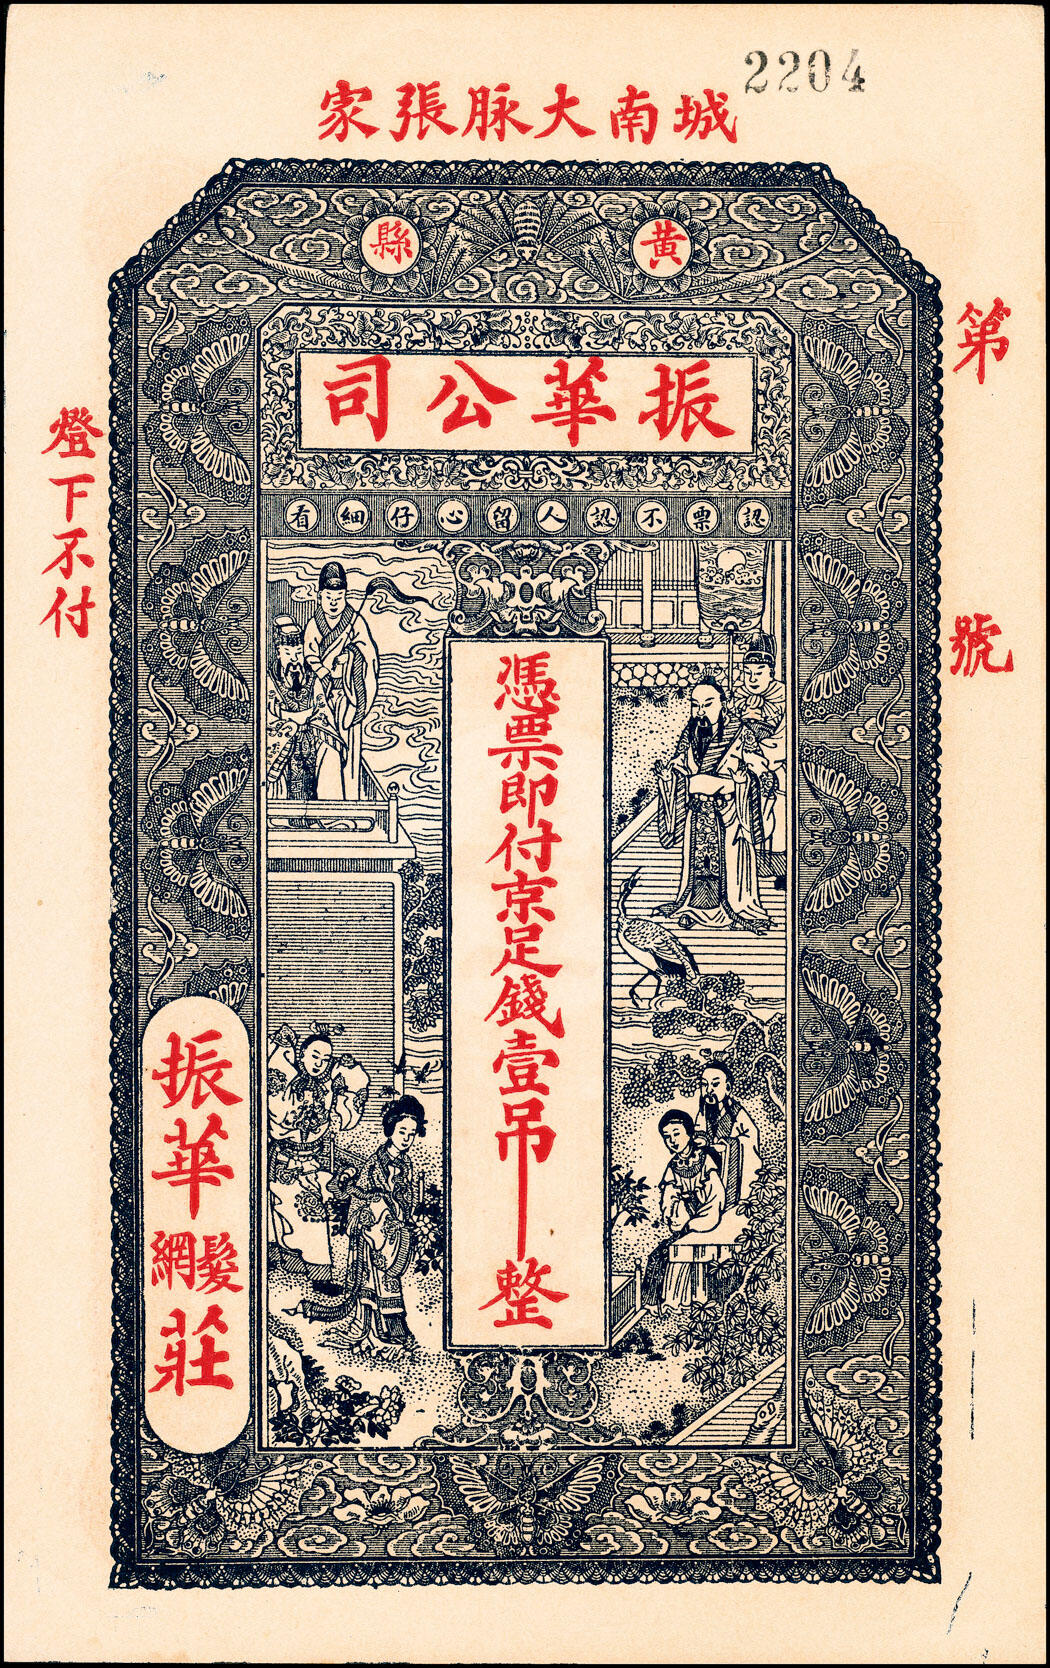 2204
城南大脉張家
黃縣
振華公司
認票不認人留心仔細看
憑票即付京足錢壹吊整
第 號
燈下不付
振華髮網莊